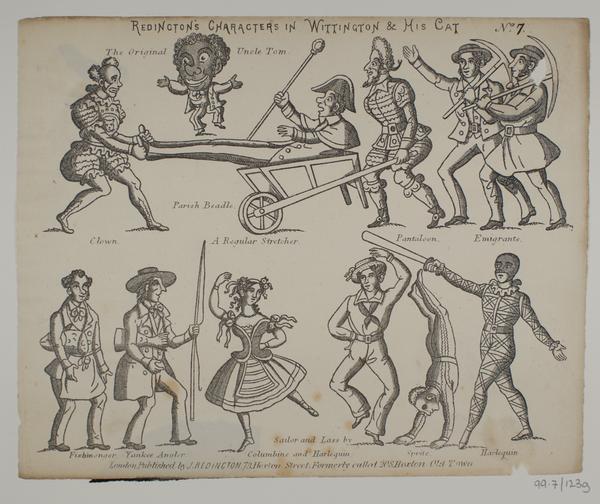 REDINGTON'S CHARACTERS IN WITTINGTON & HIS CAT No. 7.
The Original Uncle Tom.
Parish Beadle.
Clown. A Regular Stretcher. Pantaloon. Emigrants.
Sailor and Lass by
Fishmonger Yankee Angler. Columbine and Harlequin Sprite. Harlequin
London, Published by J. REDINGTON, 73, Hoxton Street, Formerly called 208, Hoxton Old Town
99.7/1239